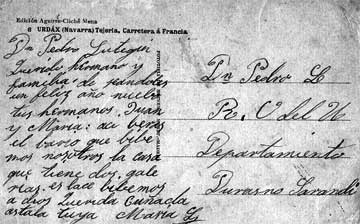 Edición Aguirre-Cliché Mena
6 URDÁX (Navarra) Tejería, Carretera á Francia
Dn Pedro
Querido hermano y
familia: de
un feliz año
tus hermanos, Juan
y María: aí benes
el barco que bibe
mos nosotros la casa
que tiene dos, gale
rías, es lace bibemos
a dios querida Cuñada
astala tuya María
Dn Pedro
R. O del U
Departamiento
Durasno Sarandí